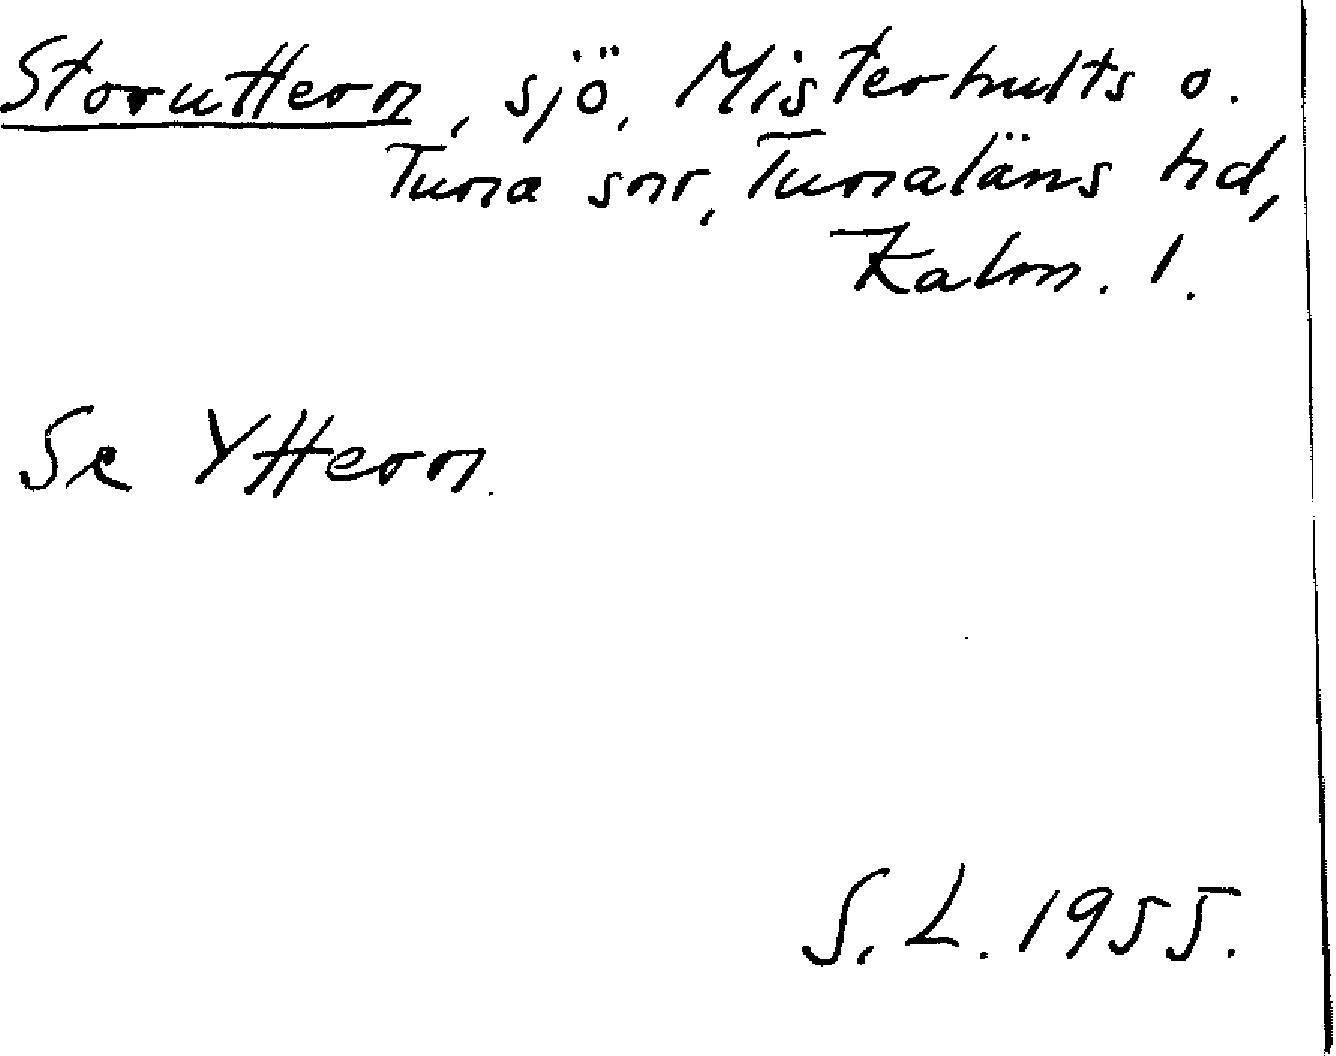 Storuttern, sjö, Misterhults o.
Tuna snr, Tunaläns hd,
Kalm. l.
Se Yttern.
S. L. 1955.